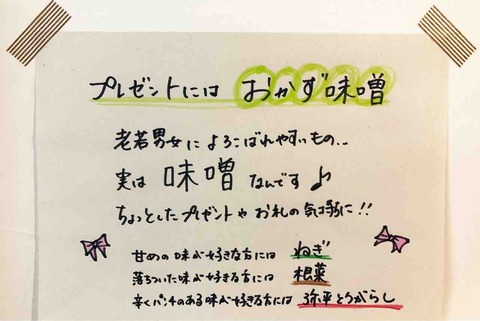 プレゼントには おかず味噌
老若男女によろこばれやすいもの…
実は 味噌 なんです♪
ちょっとしたプレゼントや お礼の気持に!!
甘めの味が好きな方には ねぎ
落ちついた味が好きな方には 根菜
辛くパンチのある味が好きな方には 弥平とうがらし